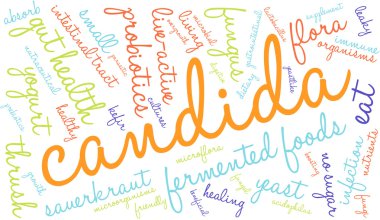 absorb
intestinal tract
candida
small
probiotics
live-active
living
microbial
fungus
dietary
gastrointestinal
lactobacillus
flora
supplement
organisms
immune
leaky
gut health
nutritional
yogurt
healthy
kefir
cultures
yeastlike
eat
candida
thrush
growth
sauerkraut
microorganisms
microflora
friendly
fungal
fermented foods
beneficial
healing
yeast
acidophilus
no sugar
infection
nutrients